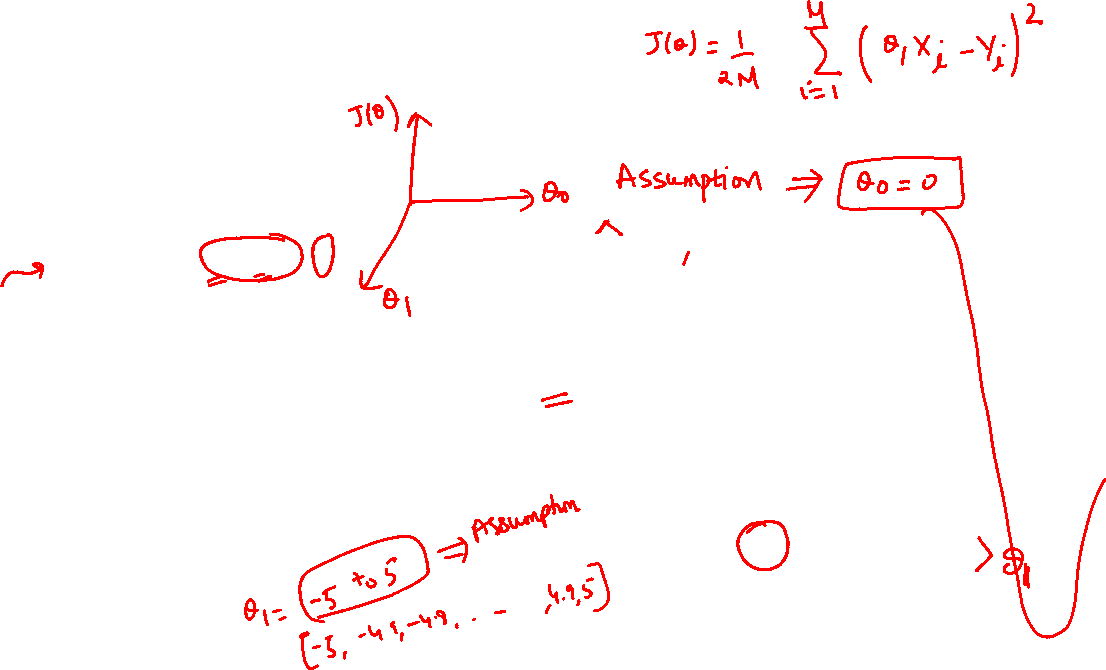 J(θ) = 1/2M Σ i=1 M (θ1 Xi - Yi)²
J(θ)
θ0
Assumption ⇒ θ0 = 0
θ1
=
θ1 = -5 to 5 ⇒ Assumption
[-5, -4.9, -4.8, . . - ,4.9,5]
> θ1